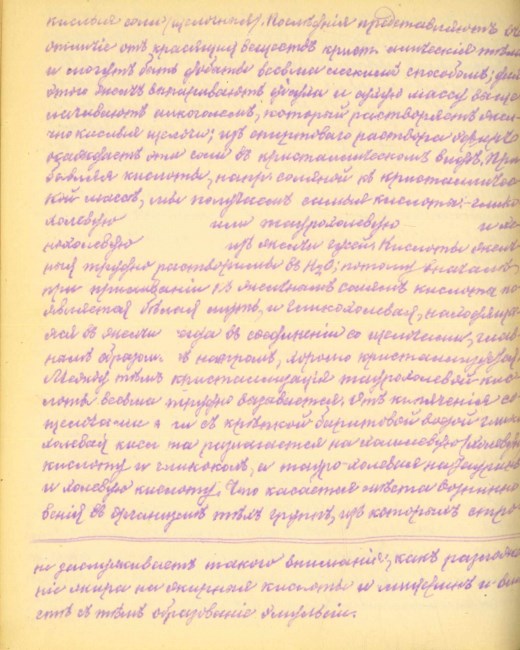 кислыя соли (щелочныя). Последнія представляютъ въ
отличіе отъ красящихъ веществъ крист тѣла
и могутъ быть добыты весьма легкимъ способомъ; для
этого желчь выпариваютъ досуха и сухую массу
алкоголемъ, который растворяетъ
кислыя щелочи; изъ спиртоваго раствора эфиръ
осаждаетъ эти соли въ кристаллическомъ видѣ. При
бавляя кислоты, напр. соляной къ кристалличес-
кой массѣ, мы получаемъ самыя кислоты: глико-
холевую или таурохолевую и
нохолевую изъ желчи гусей. Кислоты
трудно растворимы въ H₂O; потому
при приливаніи къ соляной кислоты по
является бѣлая муть, и гликохолевая, находяща-
яся въ желчи въ соединеніи со щелочами, глав-
нымъ образомъ натромъ, хорошо кристаллизуется.
Между тѣмъ кристаллизація таурохолевой кис-
лоты весьма трудно удается. Отъ кипяченія со
щелочами и съ крѣпкой баритовой водой глико-
холевая кис та разлагается на холалевую (холевую)
кислоту и гликоколъ, а тауро-холевая на тауринъ
и холевую кислоту. Что касается мѣста возникно-
венія въ организмѣ тѣхъ группъ, изъ которыхъ стро-
не заслуживаетъ такого вниманія, какъ разложе-
ніе жира на жирныя кислоты и глицеринъ и вмѣ
стѣ съ тѣмъ образованіе эмульсіи.